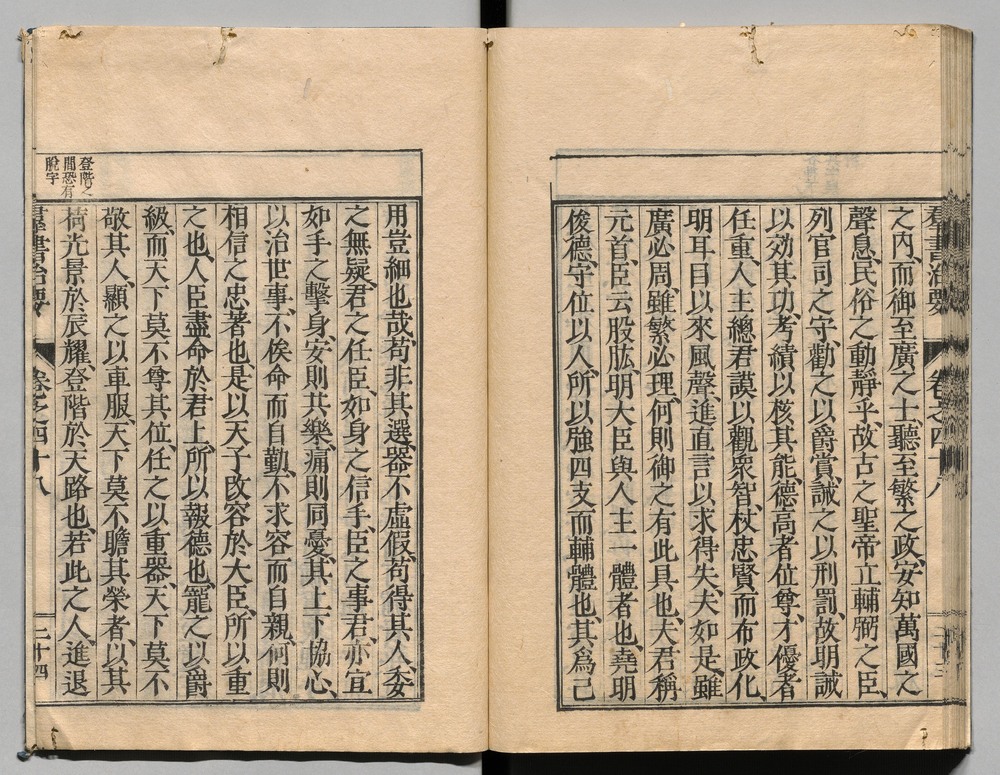 羣書治要 卷之四十八
之內、而御至廣之士、聽至繁之政、安知萬國之
聲息、民俗之動靜乎、故古之聖帝、立輔弼之臣、
列官司之守、勸之以爵賞、誡之以刑罰、故明誡
以効其功、考績以核其能、德高者位尊、才優者
任重、人主總君謨以觀衆智、杖忠賢而布政化、
明耳目以來風聲、進直言以求得失、夫如是、雖
廣必周、雖繁必理、何則御之有此具也、大君稱
元首、臣云股肱、明大臣與人主一體者也、堯明
俊德、守位以人、所以強四支而輔體也、其爲己
用豈細也哉、苟非其選、器不虛假、苟得其人、委
之無疑、君之任臣、如身之信手、臣之事君、亦宜
如手之擊身、安則共樂、痛則同憂、其上下協心、
以治世事、不俟命而自勤、不求容而自親、何則
相信之忠著也、是以天子改容於大臣、所以重
之也、人臣盡命於君上、所以報德也、寵之以爵
級、而天下莫不尊其位、任之以重器、天下莫不
敬其人、顯之以車服、天下莫不瞻其榮者、以其
荷光景於辰耀、登階於天路也、若此之人、進退
登階之
間恐有
脫字
羣書治要 卷之四十八 二十四